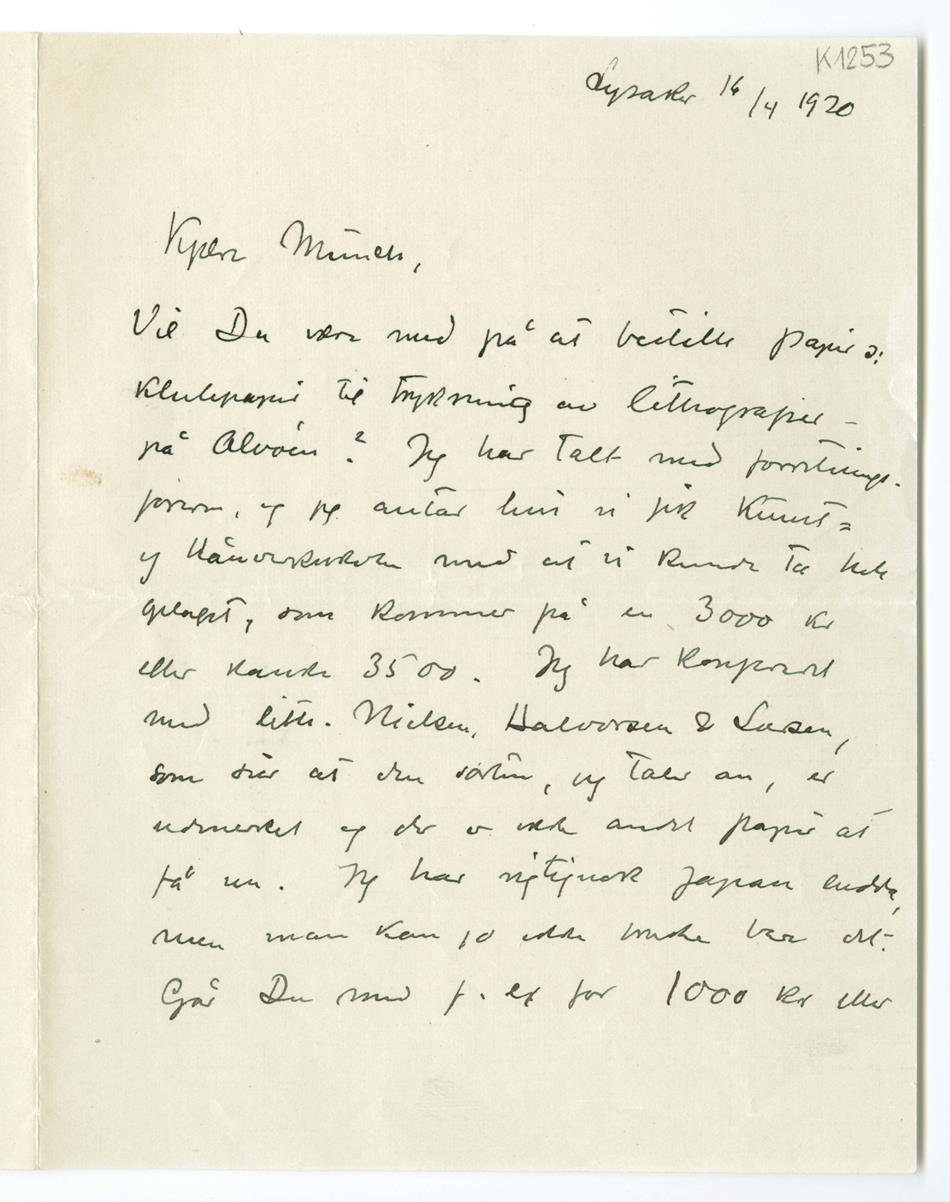 K1253
Lysaker 16/4 1920
Kjære Munch,
Vil Du være med på at bestille papir ɔ:
klutepapir til trykning av lithografier –
på Alvøen? Jeg har talt med forretnings-
føreren, og jeg antar hvis vi fik Kunst=
og Håndverkskolen med at vi kunde ta hele
oplaget, som kommer på en 3000 kr
eller kanske 3500. Jeg har konferert
med lith. Nielsen, Halvorsen & Larsen,
som sier at den sorten, jeg taler om, er
udmerket og der er ikke andet papir at
få nu. Jeg har rigtignok Japan endda,
men man kan jo ikke bruke bare det.
Går Du med f. ex for 1000 kr eller